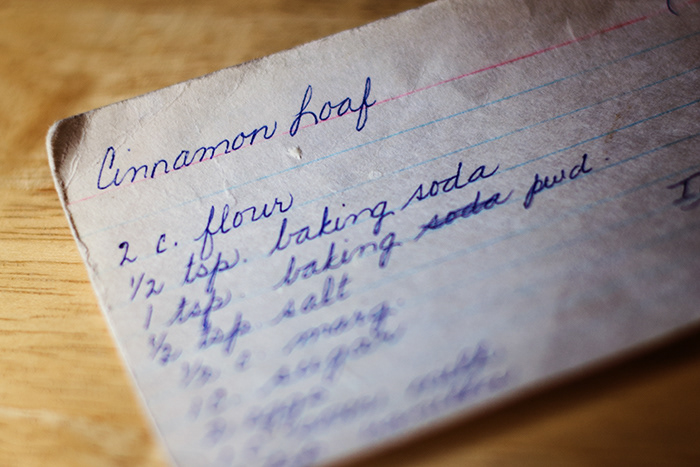 Cinnamon Loaf
2 c. flour
1/2 tsp. baking soda
1 tsp. baking soda pwd.
1/2 tsp salt
1/2 c marg.
1 c. sugar
2 eggs